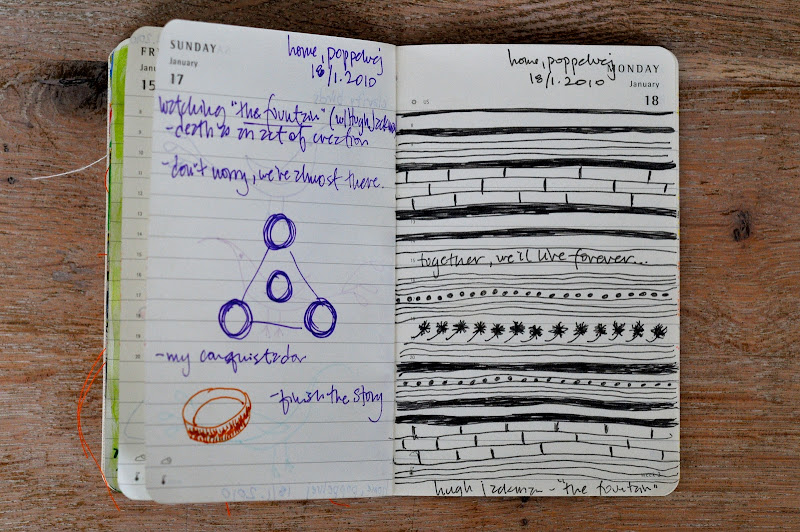 FR
Jan
15
SUNDAY
January
17
home, poppelvej
18/1.2010
watching "the fountain" (w/Hugh Jackman
- death is an act of creation
- don't worry, we're almost there.
- my conquistador
- finish the story
home, poppelvej
18/1.2010
MONDAY
January
18
together, we'll live forever...
hugh jackman - "the fountain"